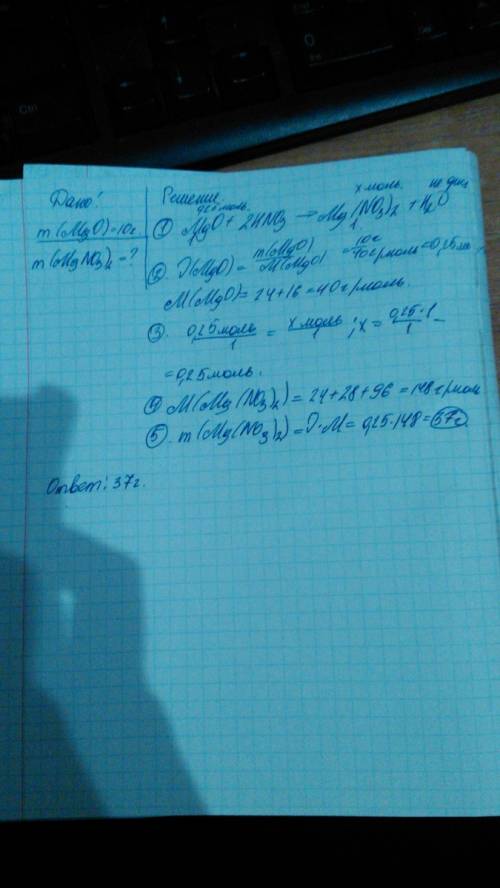 Дано:
m(MgO)=10г.
m(MgNO3)2=?
Решение.
0,25 моль. x моль.
① MgO + 2HNO3 → Mg(NO3)2 + H2O
1 1
② ν(MgO) = m(MgO)/M(MgO) = 10г/40г/моль = 0,25мо
M(MgO) = 24+16 = 40г/моль.
③. 0,25моль/1 = x моль/1; x = 0,25·1/1 –
=0,25моль.
④ M(Mg(NO3)2) = 24+28+96 = 148г/моль
⑤. m(Mg(NO3)2) = ν·M = 0,25·148 = 37г.
Ответ: 37г.